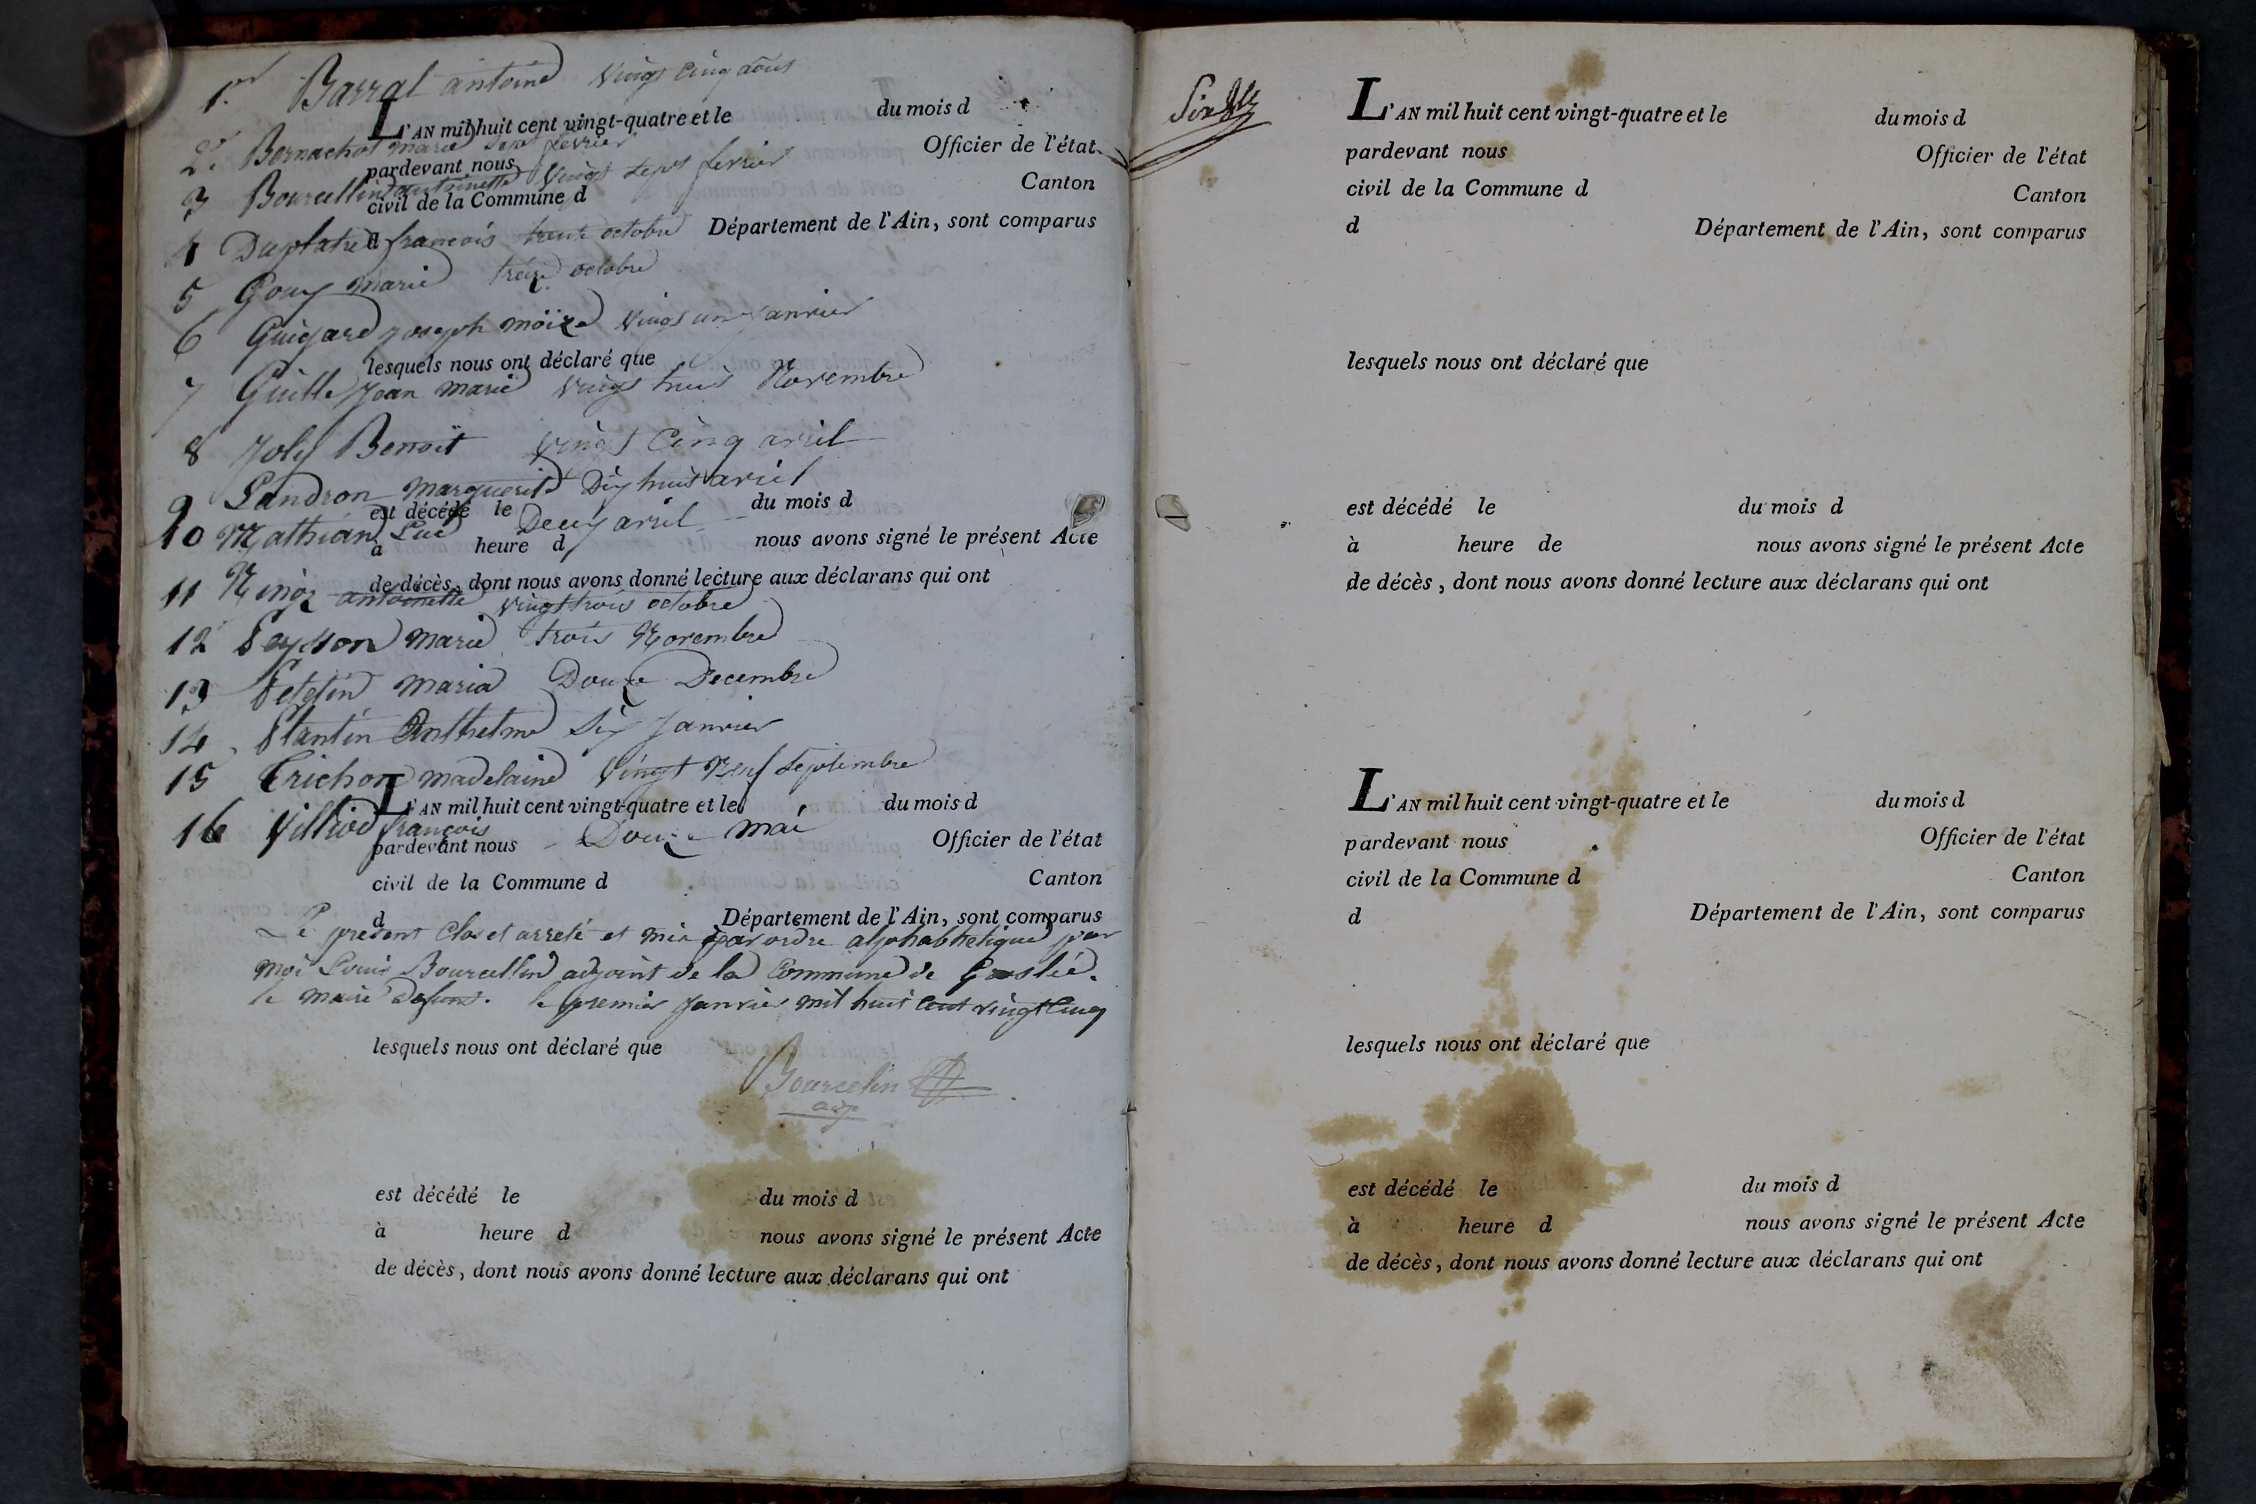 1.er Barral antoine vingt cinq août
L'AN mil huit cent vingt-quatre et le du mois d
2.e Bernachot marie sept fevrier
pardevant nous Officier de l'état
3 Bourcellin antoinette vingt sept fevrier
civil de la Commune d Canton
4 Duplatre françois trente octobre
d Département de l'Ain, sont comparus
5 Gouy marie treize octobre
6 Guigard joseph moïze vingt un janvier
lesquels nous ont déclaré que
7 Guitte jean marie vingt huit Novembre
8 Joly Benoit vingt Cinq avril
9 Landron marguerite Dix huit avril
est décédé le du mois d
10 Mathian Luc Deux avril
à heure d nous avons signé le présent Acte
de décès, dont nous avons donné lecture aux déclarans qui ont
11 Ninoz antoinette vingt trois octobre
12 Peysson marie trois Novembre
13 Petetin maria Douze Decembre
14 Plantin Anthelme Six Janvier
15 Trichon madelaine Vingt Neuf Septembre
L'AN mil huit cent vingt-quatre et le du mois d
16 Villiod françois Douze mai
pardevant nous Officier de l'état
civil de la Commune d Canton
d Département de l'Ain, sont comparus
Le present Clos et arreté et mis par ordre alphabhetique par
moi Louis Bourcellin adjoint de la Commune de Groslée.
le maire Defunt. le premier Janvier mil huit cent vingt Cinq
lesquels nous ont déclaré que
Bourcelin
adj
est décédé le du mois d
à heure d nous avons signé le présent Acte
de décès, dont nous avons donné lecture aux déclarans qui ont
Six
L'AN mil huit cent vingt-quatre et le du mois d
pardevant nous Officier de l'état
civil de la Commune d Canton
d Département de l'Ain, sont comparus
lesquels nous ont déclaré que
est décédé le du mois d
à heure de nous avons signé le présent Acte
de décès, dont nous avons donné lecture aux déclarans qui ont
L'AN mil huit cent vingt-quatre et le du mois d
pardevant nous Officier de l'état
civil de la Commune d Canton
d Département de l'Ain, sont comparus
lesquels nous ont déclaré que
est décédé le du mois d
à heure d nous avons signé le présent Acte
de décès, dont nous avons donné lecture aux déclarans qui ont